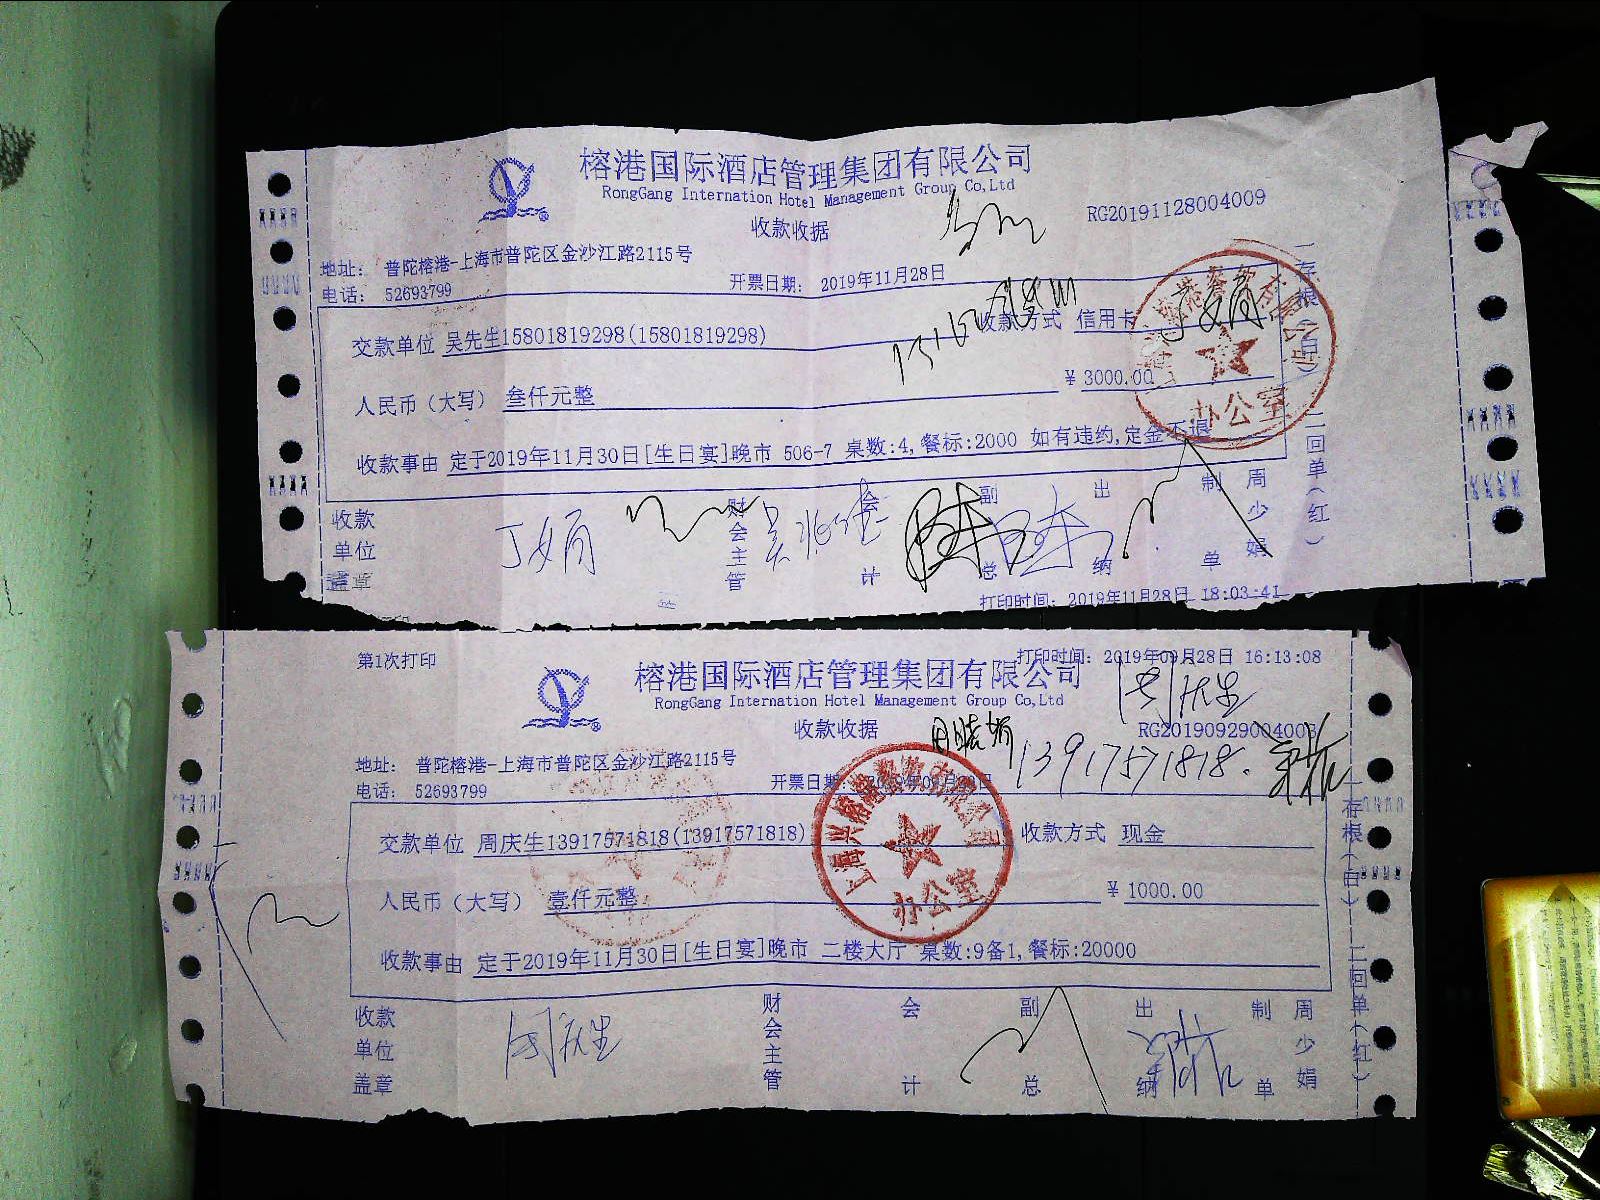 榕港国际酒店管理集团有限公司
RongGang Internation Hotel Management Group Co,Ltd
收款收据
RG20191128004009
地址： 普陀榕港-上海市普陀区金沙江路2115号
电话： 52693799
开票日期： 2019年11月28日
交款单位 吴先生15801819298(15801819298)
收款方式 信用卡
人民币（大写） 叁仟元整
¥ 3000.00
收款事由 定于2019年11月30日[生日宴]晚市 506-7 桌数:4,餐标:2000 如有违约,定金不退
收款单位盖章
财会主管
会计
副总
出纳
制单
周少娟
一存根（白）
二回单（红）
办公室
打印时间： 2019年11月28日 18:03:41
第1次打印
打印时间： 2019年09月28日 16:13:08
榕港国际酒店管理集团有限公司
RongGang Internation Hotel Management Group Co,Ltd
收款收据
周庆生
13917571818.
地址： 普陀榕港-上海市普陀区金沙江路2115号
电话： 52693799
开票日期：
交款单位 周庆生13917571818(13917571818)
收款方式 现金
人民币（大写） 壹仟元整
¥ 1000.00
收款事由 定于2019年11月30日[生日宴]晚市 二楼大厅 桌数:9备1,餐标:20000
收款单位盖章
周庆生
财会主管
会计
副总
出纳
制单
周少娟
一存根（白）
二回单（红）
办公室